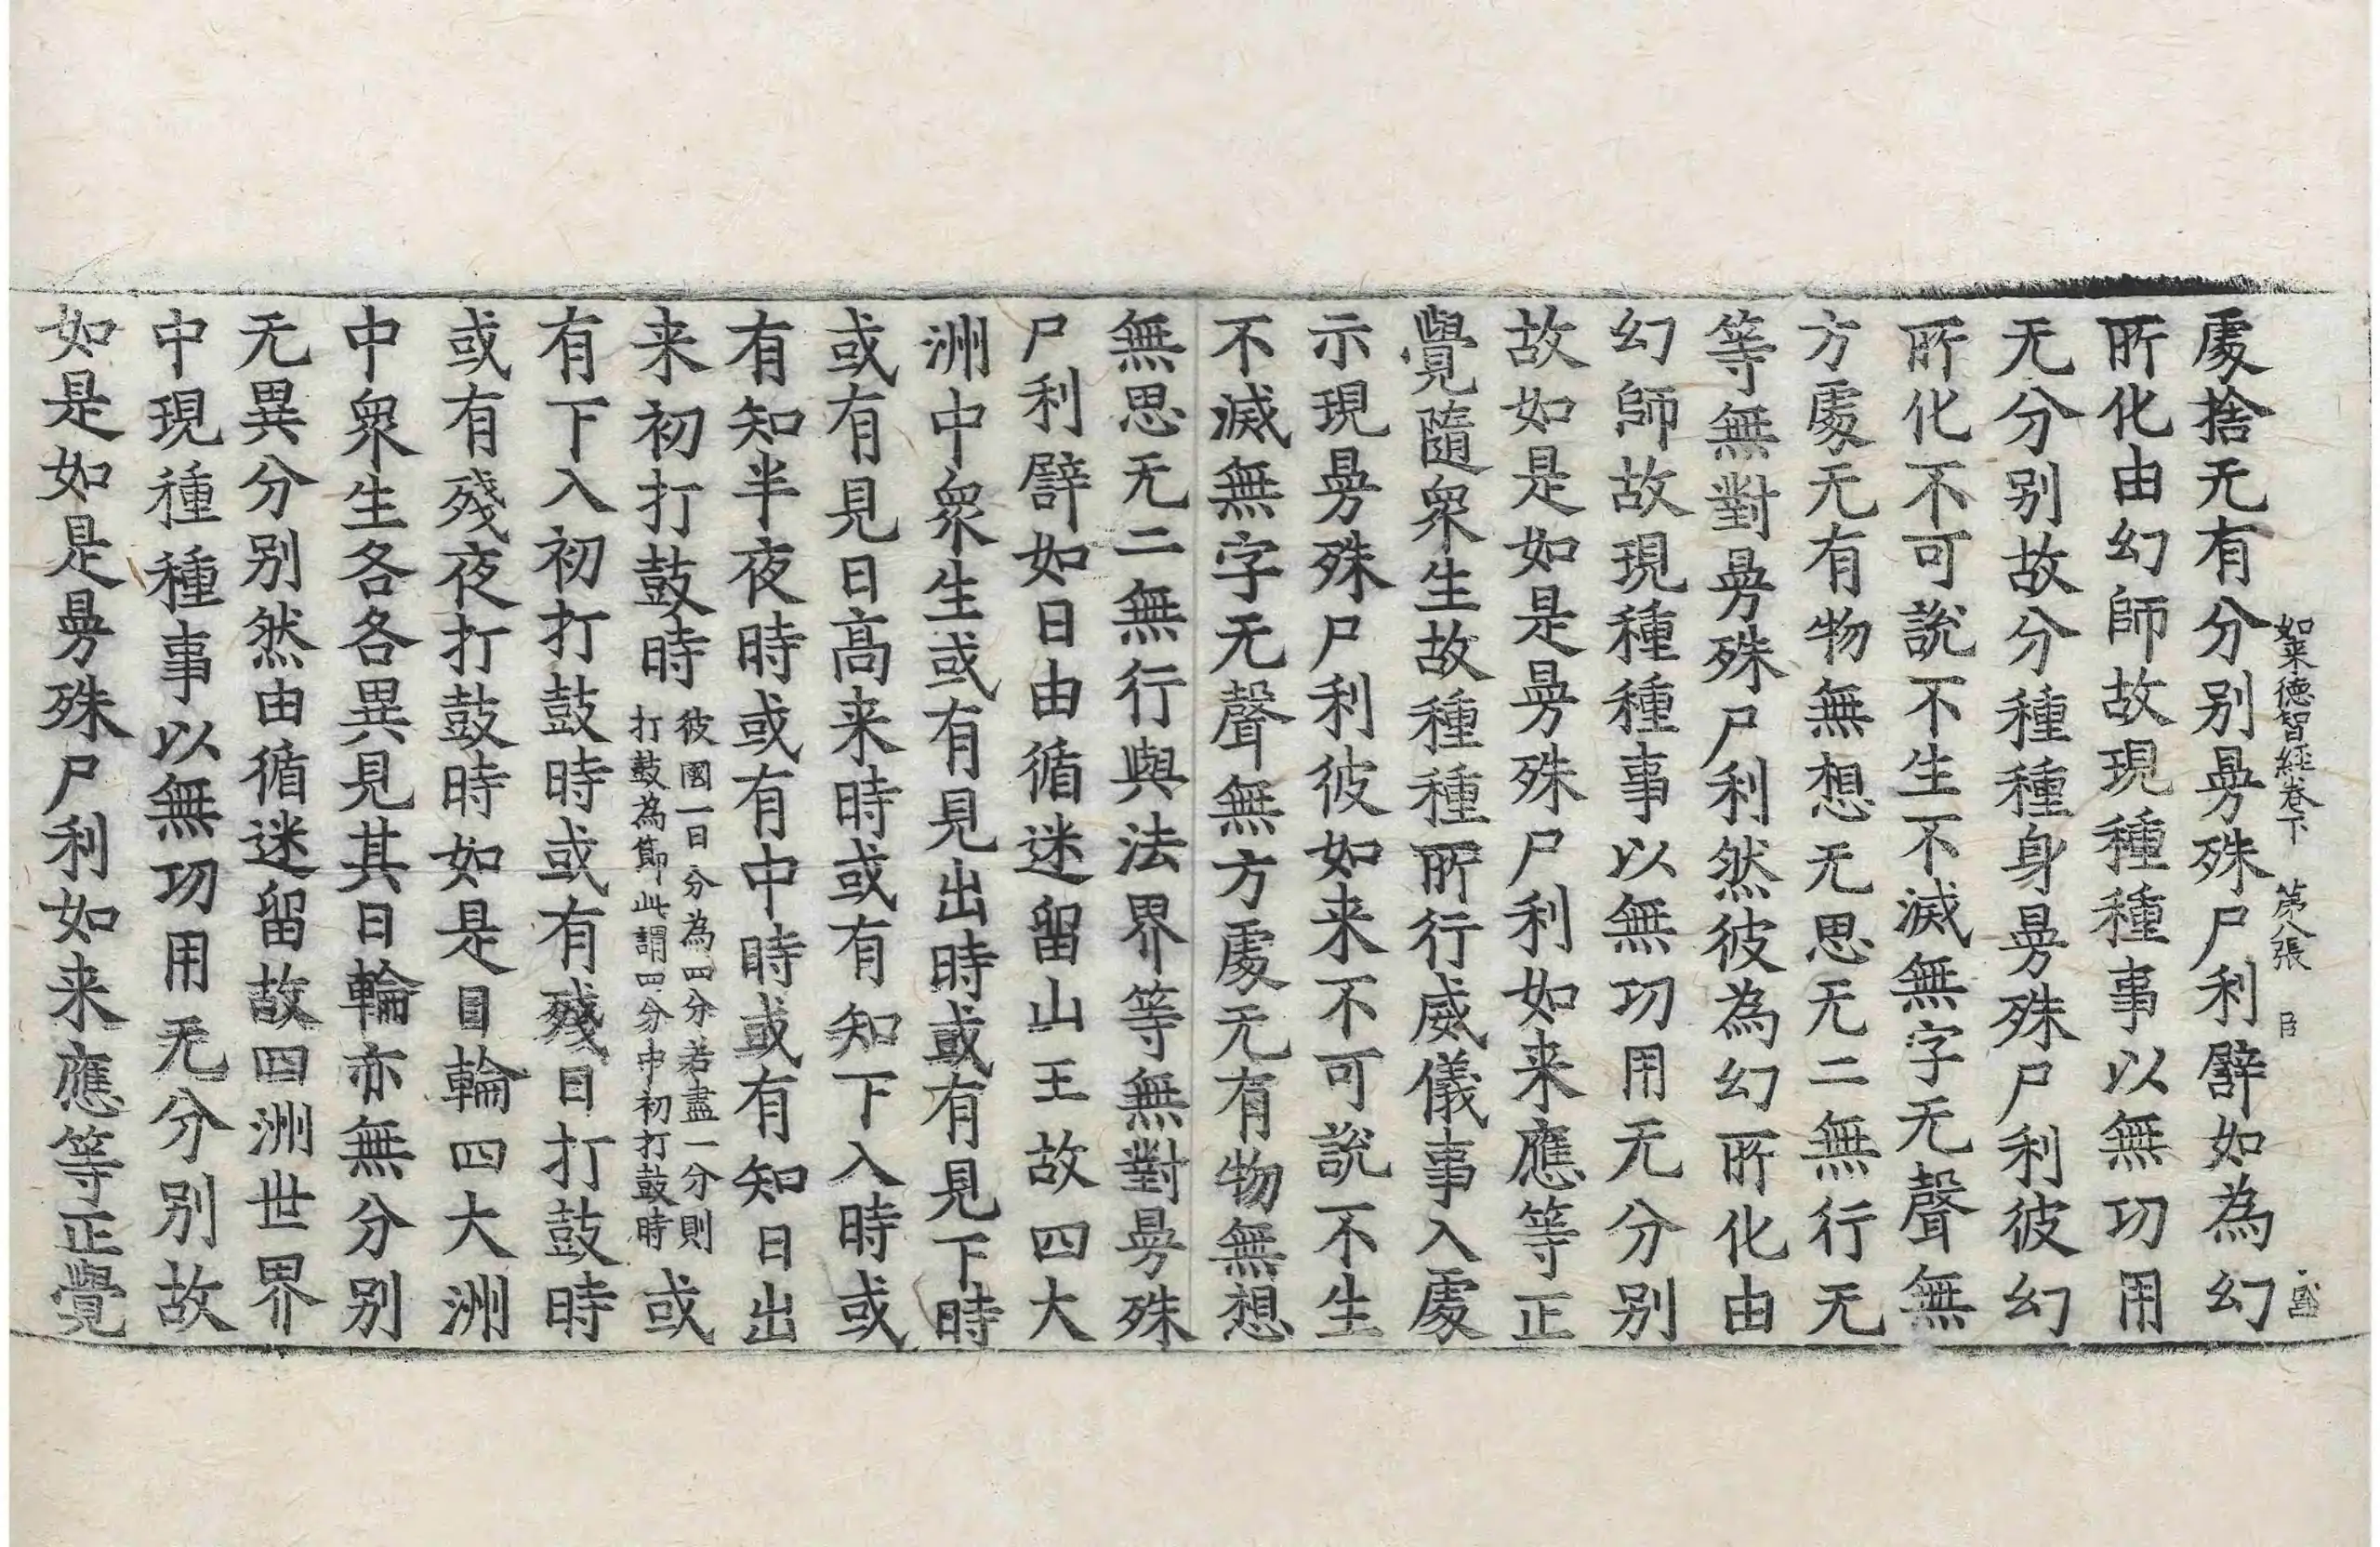 如来德智經卷下 第八張 臣
處捨无有分别㬅殊尸利譬如為幻
所化由幻師故現種種事以無功用
无分别故分種種身㬅殊尸利彼幻
所化不可說不生不滅無字无聲無
方處无有物無想无思无二無行无
等無對㬅殊尸利然彼為幻所化由
幻師故現種種事以無功用无分别
故如是如是㬅殊尸利如来應等正
覺隨衆生故種種所行威儀事入處
示現㬅殊尸利彼如来不可說不生
不滅無字无聲無方處无有物無想
無思无二無行與法界等無對㬅殊
尸利譬如日由循迷留山王故四大
洲中衆生或有見出時或有見下時
或有見日高来時或有知下入時或
有知半夜時或有中時或有知日出
来初打鼓時彼國一日分為四分若盡一分則打鼓為節此謂四分中初打鼓時或
有下入初打鼓時或有殘日打鼓時
或有殘夜打鼓時如是日輪四大洲
中衆生各各異見其日輪亦無分别
无異分别然由循迷留故四洲世界
中現種種事以無功用无分别故
如是如是㬅殊尸利如来應等正覺